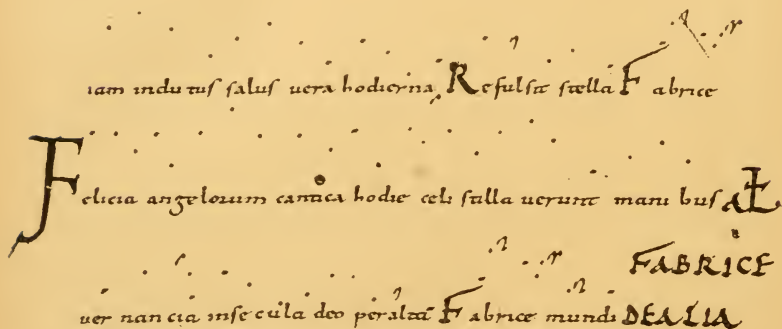 iam indutus salus uera hodierna Refulsit stella Fabrice
Felicia angelorum cantica hodie celi stilla uerunt mani bus
FABRICE
uer nan cia inse cula deo peralta Fabrice mundi DEALIA